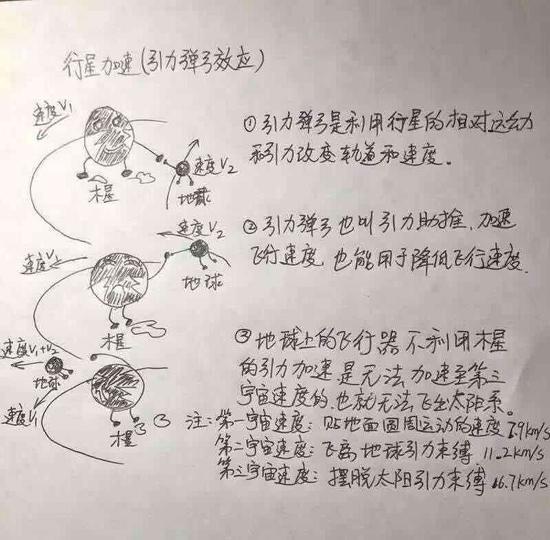 行星加速(引力弹弓效应)
速度V1
速度V2
地球
木星
①引力弹弓是利用行星的相对运动
和引力改变轨道和速度。
速度V2
地球
速度V1
木星
②引力弹弓也叫引力助推,加速
飞行速度,也能用于降低飞行速度.
速度V1+V2
地球
速度V1
木星
③地球上的飞行器不利用木星
的引力加速是无法加速至第三
宇宙速度的,也就无法飞出太阳系。
注:第一宇宙速度:贴地面圆周运动的速度7.9km/s
第二宇宙速度:飞离地球引力束缚 11.2km/s
第三宇宙速度:摆脱太阳引力束缚 16.7km/s